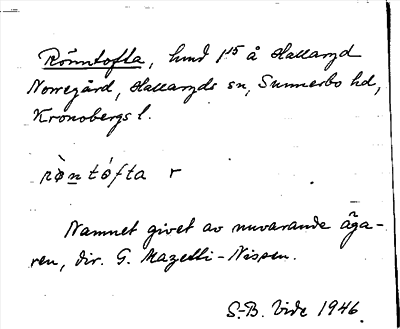 Rönntofta, hmd 1¹⁵ å Hallaryd
Norregård, Hallaryds sn, Sunnerbo hd,
Kronobergs l.
rø̀ntófta r
Namnet givet av nuvarande äga-
ren, dir. G. Mazetti-Nissen.
S.-B. Vide 1946.